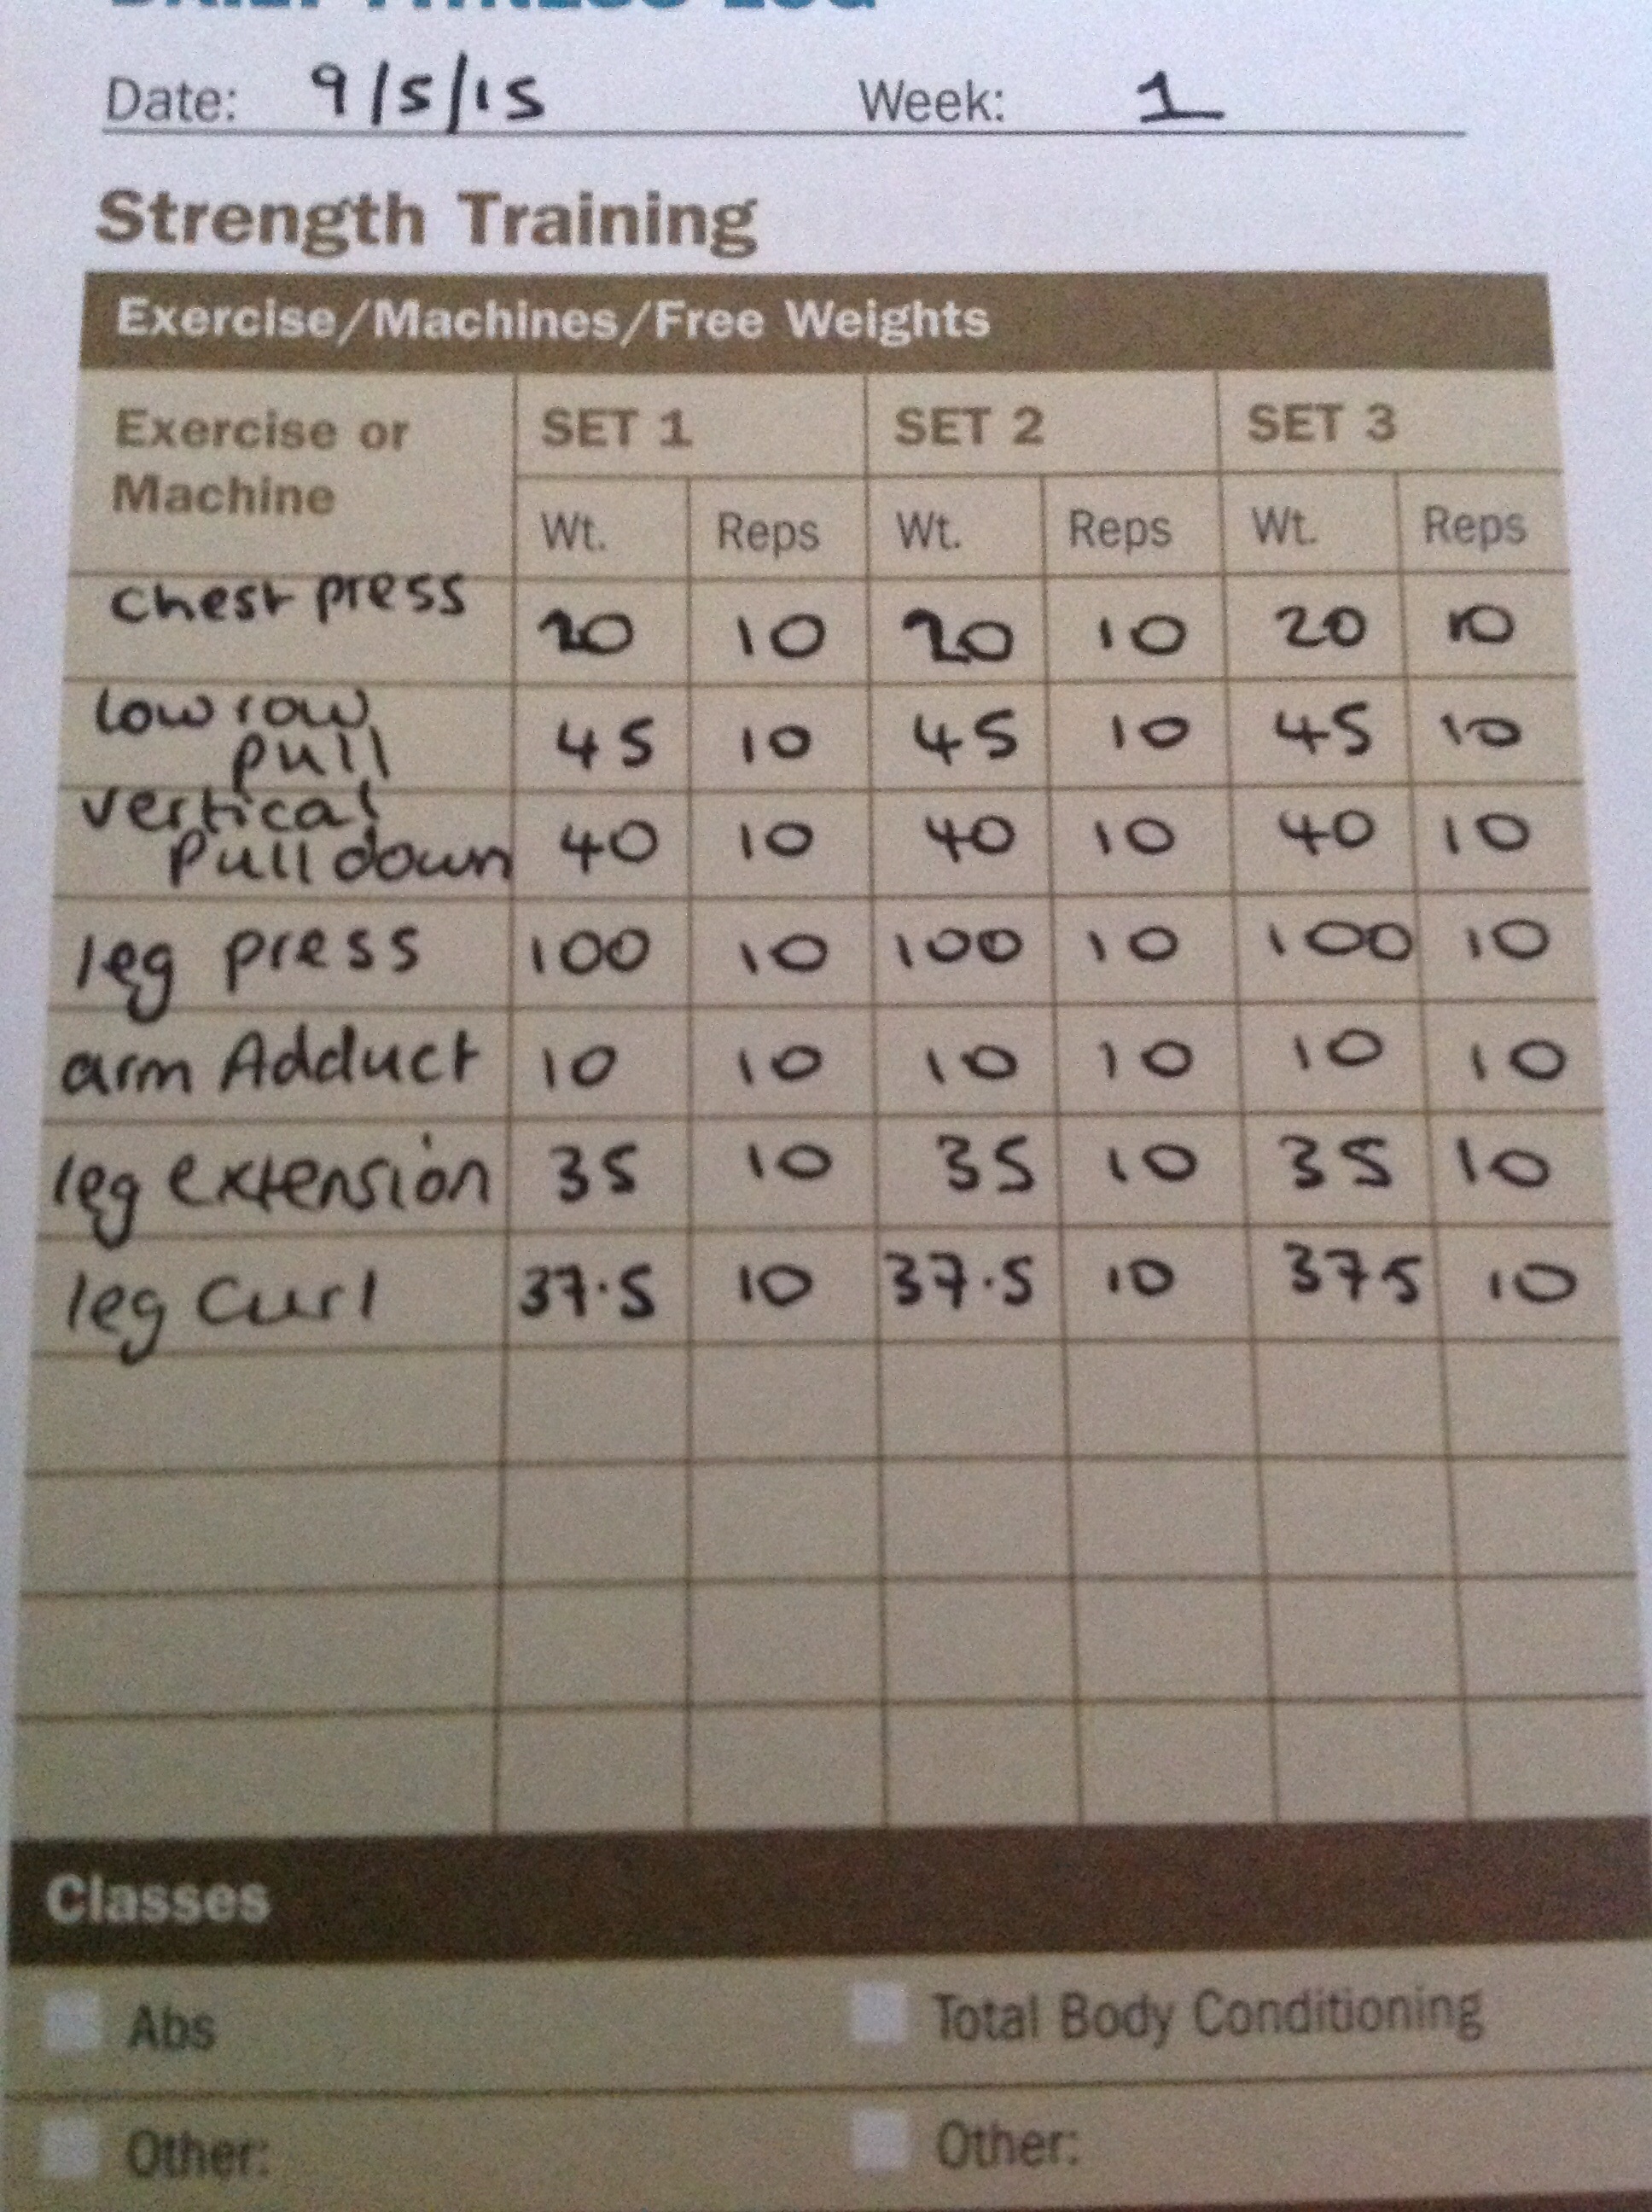 DAILY FITNESS LOG
Date: 9/5/15 Week: 1
Strength Training
Exercise/Machines/Free Weights
Exercise or SET 1 SET 2 SET 3
Machine
Wt. Reps Wt. Reps Wt. Reps
chest press 20 10 20 10 20 10
low row
pull 45 10 45 10 45 10
vertical
Pull down 40 10 40 10 40 10
leg press 100 10 100 10 100 10
arm Adduct 10 10 10 10 10 10
leg extension 35 10 35 10 35 10
leg Curl 37.5 10 37.5 10 375 10
Classes
Abs Total Body Conditioning
Other: Other: